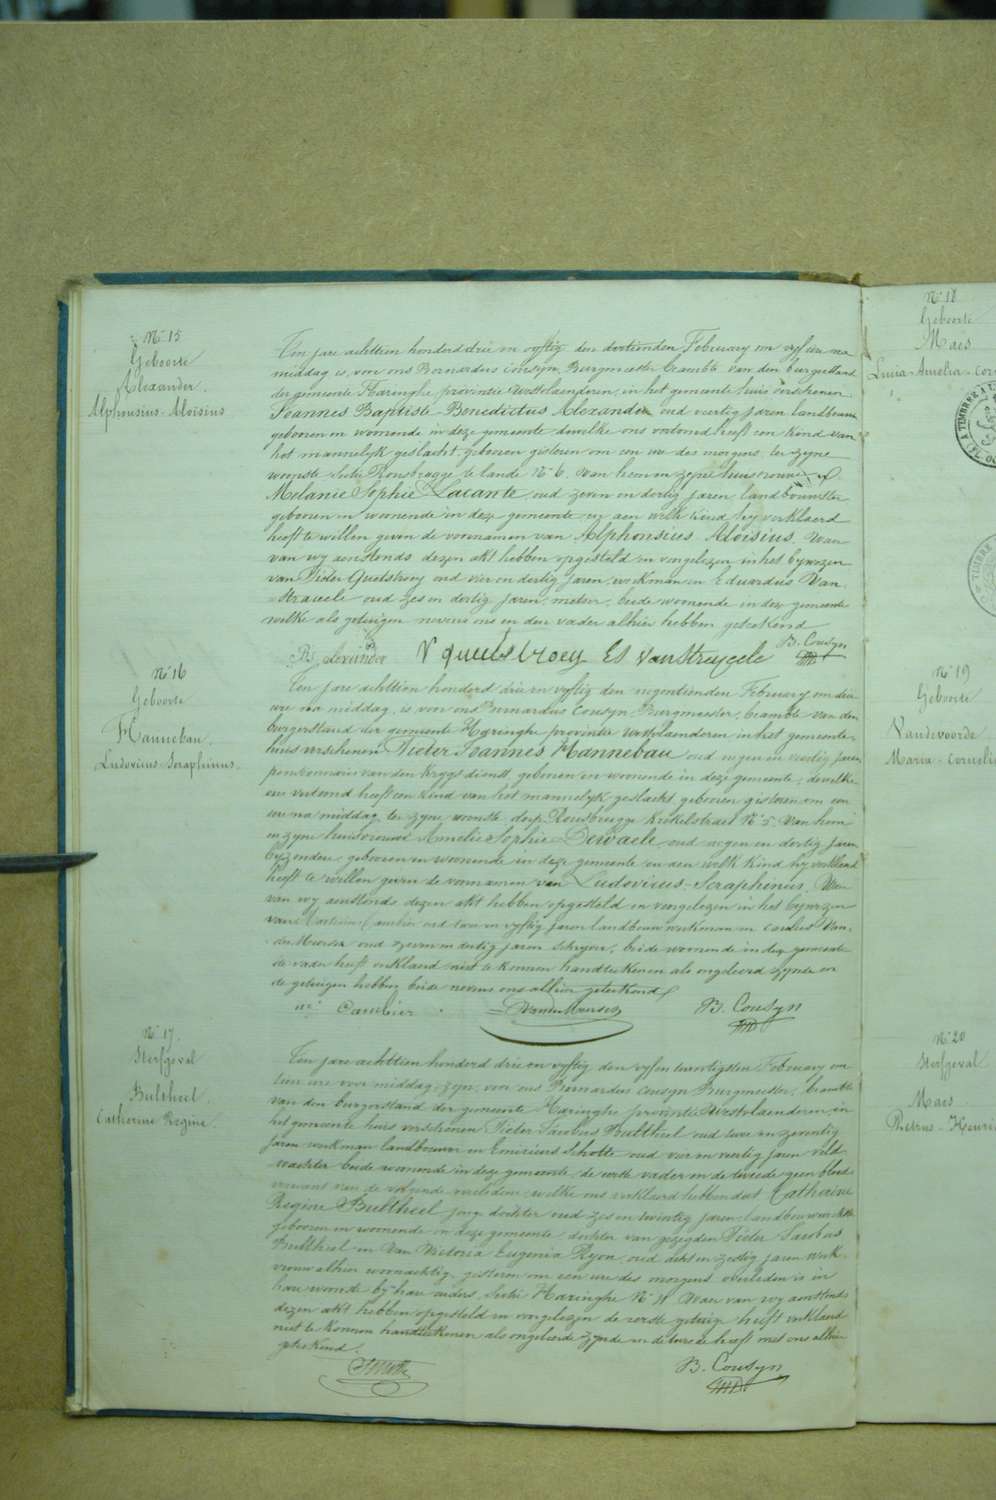 N° 15
Geboorte
Alexander.
Alphonsius-Aloisius
Ten jare achttien honderd drie en vyftig den dertienden February om vyf ure na
middag is, voor ons Bernardus Cousyn, Burgmeester beambte van den burgerstand
der gemeente Haringhe, provintie Westvlaenderen, in het gemeente huis verschenen
Joannes Baptiste-Benedictus Alexander oud veertig jaren, landbouwer
geboren en woonende in deze gemeente, dewelke ons vertoond heeft een kind van
het mannelyk geslacht, geboren gisteren om een ure des morgens, ter zyne
woonste sectie Rousbrugge te lande N° 6. van hem en zyne huisvrouwe
Melanie Sophie Lacante, oud zeven en dertig jaren, landbouwster
geboren en woonende in deze gemeente en aen welk kind hy verklaerd
heeft te willen geven de voornamen van Alphonsius Aloisius, Waer
van wy aenstonds dezen akt hebben opgesteld en voorgelezen in het bywezen
van Pieter Quelstroey oud vier en dertig jaren, werkman en Eduardus Van
Straceele oud zes en dertig jaren, metser, beide woonende in deze gemeente
welke als getuigen nevens ons en den vader alhier hebben geteekend
B. Cousyn
N° 16
Geboorte
Hannebau.
Ludovicus-Seraphinus.
Ten jare achttien honderd drie en vyftig den negentienden February om drie
ure na middag, is voor ons Bernardus Cousyn Burgmeester, beambte van den
burgerstand der gemeente Haringhe provintie Westvlaenderen in het gemeente-
huis verschenen Pieter Joannes Hannebau oud negen en veertig jaren
pensionnaris van den krygsdienst, geboren en woonende in deze gemeente, dewelke
ons vertoond heeft een kind van het mannelyk geslacht, geboren gisteren om een
ure na middag, te zyne woonste dorp Rousbrugge Krekelstraet N° 5. Van hem
en zyne huisvrouwe Amelie Sophie Dewaele oud negen en dertig jaren
byzondere, geboren en woonende in deze gemeente en aen welk kind hy verklaerd
heeft te willen geven de voornamen van Ludovicus-Seraphinus, Waer
van wy aenstonds dezen akt hebben opgesteld en voorgelezen in het bywezen
van Cambier oud twee en vyftig jaren landbouw werkman en Carolus Van-
der Meersch oud zeven en dertig jaren schryver, beide woonende in deze gemeente
de vader heeft verklaerd niet te konnen handteekenen als ongeleerd zynde en
de getuigen hebben beide nevens ons alhier geteekend
Cambier . Vandermeersch B. Cousyn
N° 17.
Sterfgeval
Bultheel.
Catherine Regine.
Ten jare achttien honderd drie en vyftig den vyfentwintigsten February om
tien ure voor middag, zyn, voor ons Bernardus Cousyn Burgmeester, beambte
van den burgerstand der gemeente Haringhe provintie Westvlaenderen in
het gemeente huis verschenen Pieter Jacobus Bultheel oud twee en zeventig
jaren werkman landbouwer en Schotte oud vier en veertig jaren veld
wachter beide woonende in deze gemeente, de eerste vader en de tweede geen bloed
verwant van de volgende overledene welke ons verklaerd hebben dat Catharine
Regine Bultheel jonge dochter oud zes en twintig jaren, landbouwwerkster
geboren en woonende in deze gemeente dochter van gezegden Pieter Jacobus
Bultheel en Van Victoria Eugenia Ryon oud acht en zestig jaren werk-
vrouw alhier woonachtig, gisteren om een ure des morgens overleden is in
hare woonste by hare ouders, Sectie Haringhe N° 11 Waer van wy aenstonds
dezen akt hebben opgesteld en voorgelezen de eerste getuige heeft verklaerd
niet te konnen handteekenen als ongeleerde zynde en de tweede heeft met ons alhier
geteekend.
B. Cousyn
N° 18
Geboorte
Maes
Lucia-Amelia-Cor
N° 19
Geboorte
Vandevoorde
Maria-Corneli
N° 20
Sterfgeval
Maes
Petrus-Henri